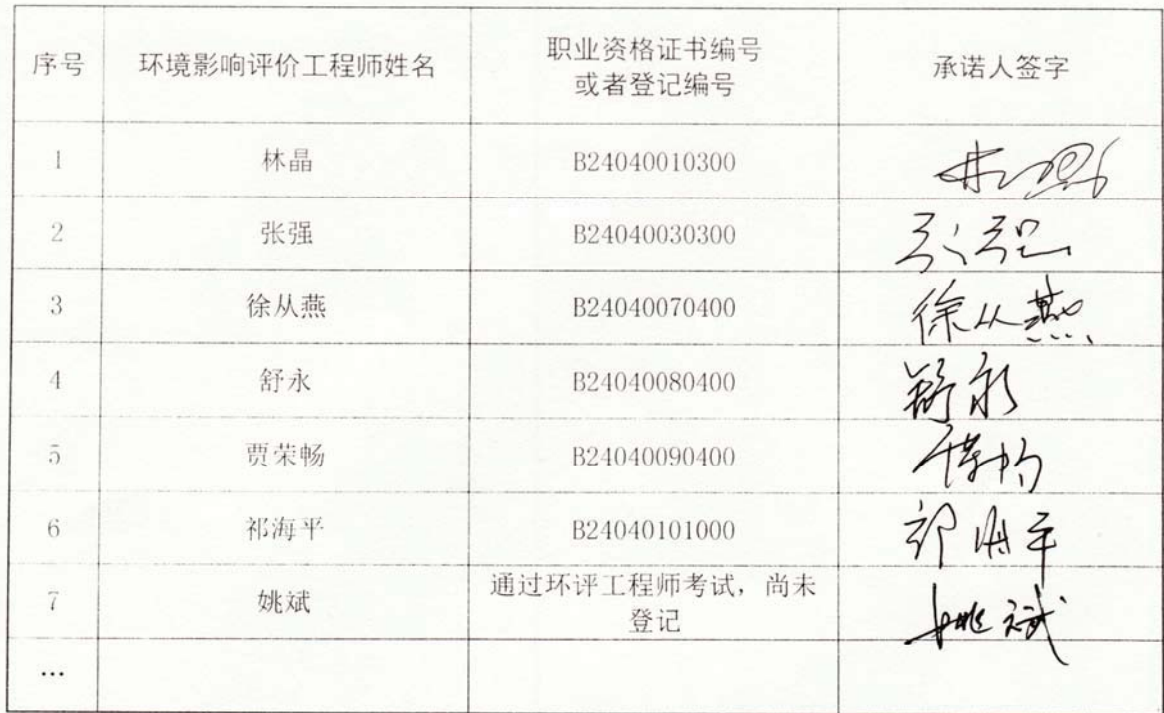 序号 环境影响评价工程师姓名 职业资格证书编号 承诺人签字
或者登记编号
1 林晶 B24040010300 林晶
2 张强 B24040030300 张强
3 徐从燕 B24040070400 徐从燕
4 舒永 B24040080400 舒永
5 贾荣畅 B24040090400
6 祁海平 B24040101000 祁海平
7 姚斌 通过环评工程师考试，尚未 姚斌
登记
…